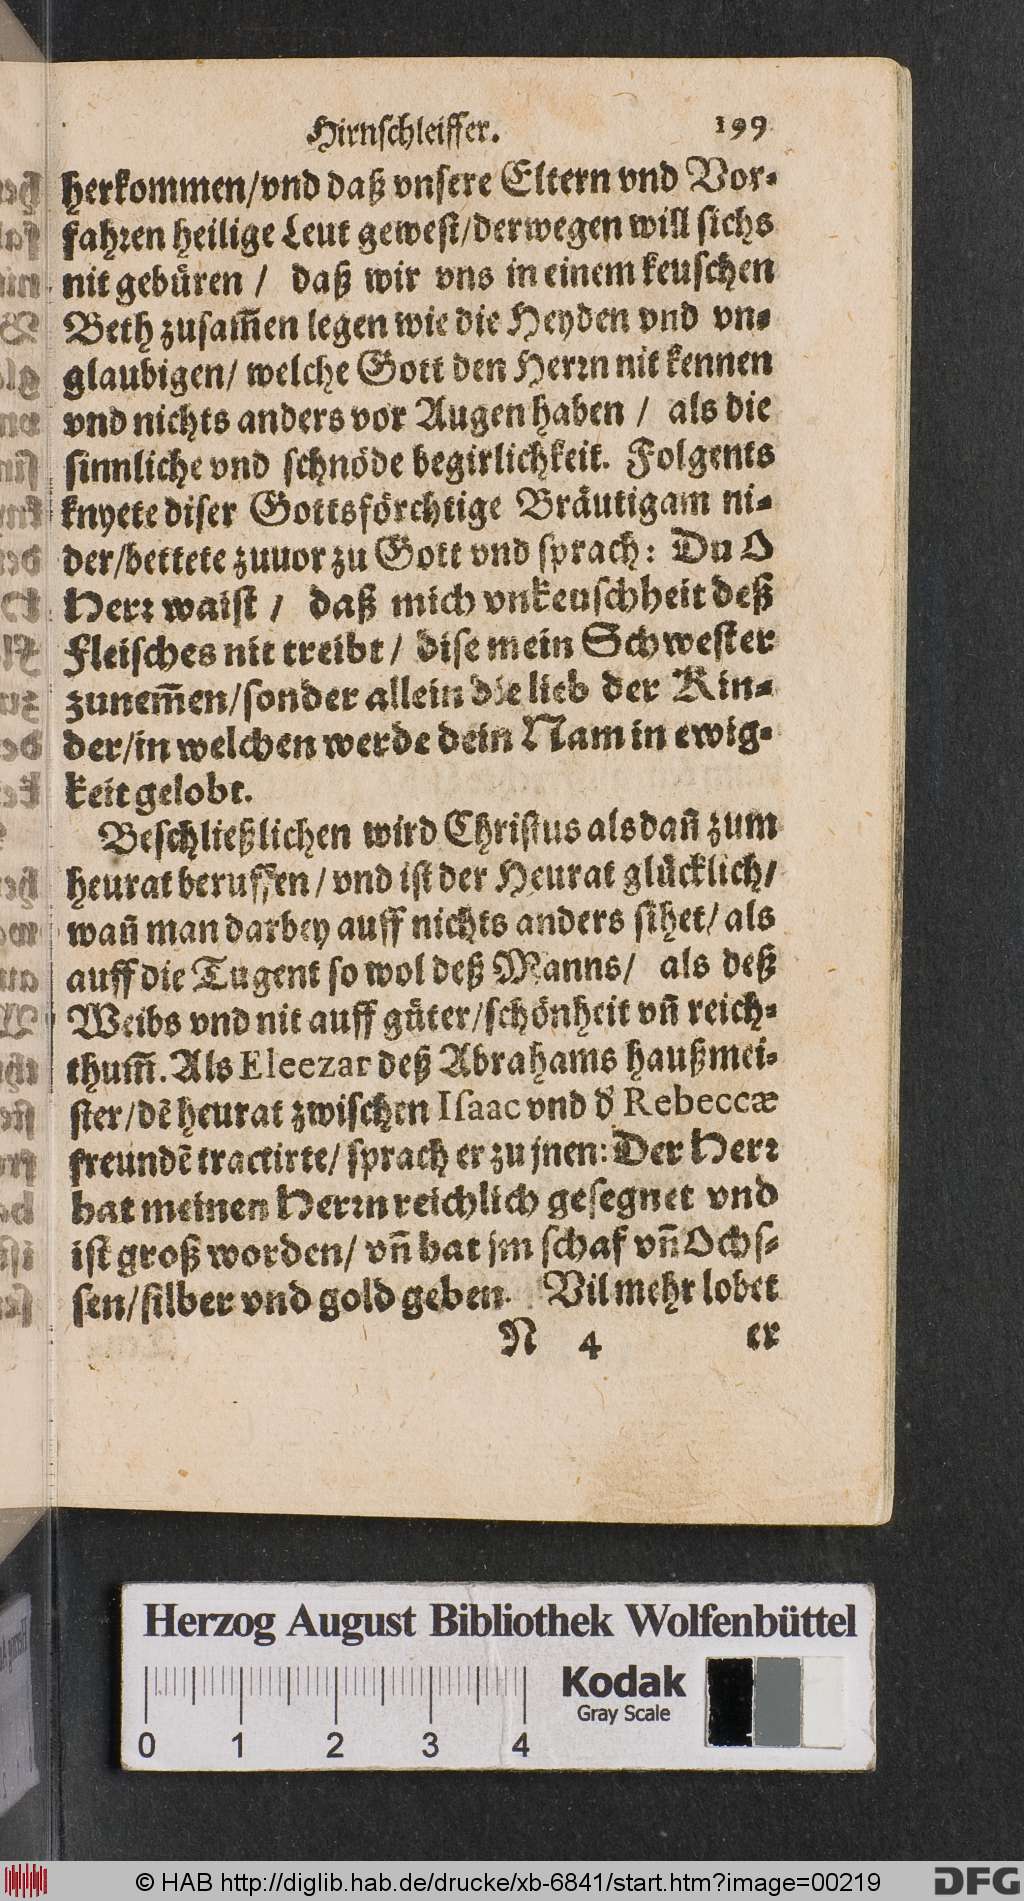 Hirnschleiffer. 199
herkommen/vnd daß vnsere Eltern vnd Vor-
fahren heilige Leut gewest/derwegen will sichs
nit gebüren / daß wir vns in einem keuschen
Beth zusam̄en legen wie die Heyden vnd vn-
glaubigen/ welche Gott den Herrn nit kennen
vnd nichts anders vor Augen haben / als die
sinnliche vnd schnöde begirlichkeit. Folgents
knyete diser Gottsförchtige Bräutigam ni-
der/bettete zuuor zu Gott vnd sprach: Du O
Herr waist / daß mich vnkeuschheit deß
Fleisches nit treibt / dise mein Schwester
zunem̄en/sonder allein die lieb der Kin-
der/in welchen werde dein Nam in ewig-
keit gelobt.
Beschließlichen wird Christus alsdañ zum
heurat beruffen/ vnd ist der Heurat glücklich/
wañ man darbey auff nichts anders sihet/ als
auff die Tugent so wol deß Manns/ als deß
Weibs vnd nit auff güter/schönheit vñ reich-
thum̄. Als Eleezar deß Abrahams haußmei-
ster/dē heurat zwischen Isaac vnd d' Rebeccæ
freundē tractirte/ sprach er zu jnen: Der Herr
hat meinen Herrn reichlich gesegnet vnd
ist groß worden/ vñ hat jm schaf vñ Ochs-
sen/silber vnd gold geben. Vil mehr lobet
N 4 er
Herzog August Bibliothek Wolfenbüttel
Kodak
Gray Scale
0 1 2 3 4
© HAB http://diglib.hab.de/drucke/xb-6841/start.htm?image=00219
DFG